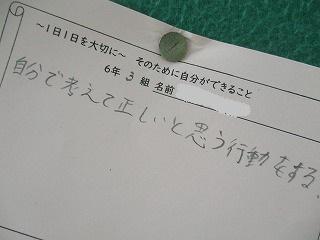 ～1日1日を大切に～　そのために自分ができること
6年 3 組 名前
自分で考えて正しいと思う行動をする。